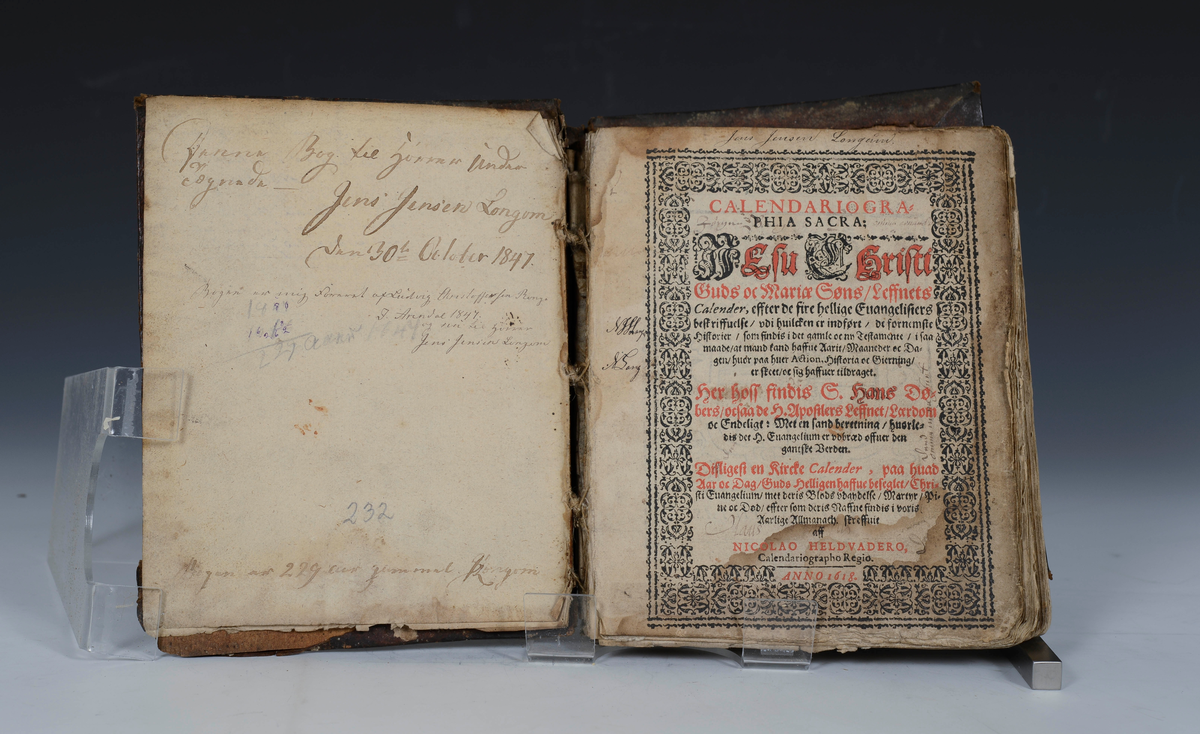 Denne Bog til Hörrer Under
tegnede
Jens Jensen Longom
den 30te October 1847.
Bogen er mig Foræret af Ludvig
I Arendal 1847.
Jens Jensen Longom
232
Bogen er 229 aar gammel, Longom
Jens Jensen Longum
CALENDARIOGRA-
PHIA SACRA:
JEsu CHristi
Guds oc Mariæ Søns/Leffnets
Calender, effter de fire hellige Euangelisters
beskriffuelse/ vdi huilcken er indført/ de fornemste
Historier/ som findis i det gamle oc ny Testamente/ i saa
maade/at mand kand haffue Aarit/Maaneder oc Da-
gen/huor paa huer Action, Historia oc Gierning/
er skeet/oc sig haffuer tildraget.
Her hoss findis S. Hans Dø-
bers/ocsaa de H. Apostlers Leffnet/Lærdom
oc Endeligt: Met en sand beretning/huorle-
dis det H. Euangelium er vdbræd offuer den
gantske Verden.
Disligest en Kircke Calender, paa huad
Aar oc Dag/Guds Helligen haffue beseglet/Chri-
sti Euangelium/met deris Blods vdgydelse/Martyr/Pi-
ne oc Død/effter som deris Naffne findis i voris
Aarlige Allmanach, skreffuit
aff
NICOLAO HELDVADERO,
Calendariographo Regio.
ANNO 1618.